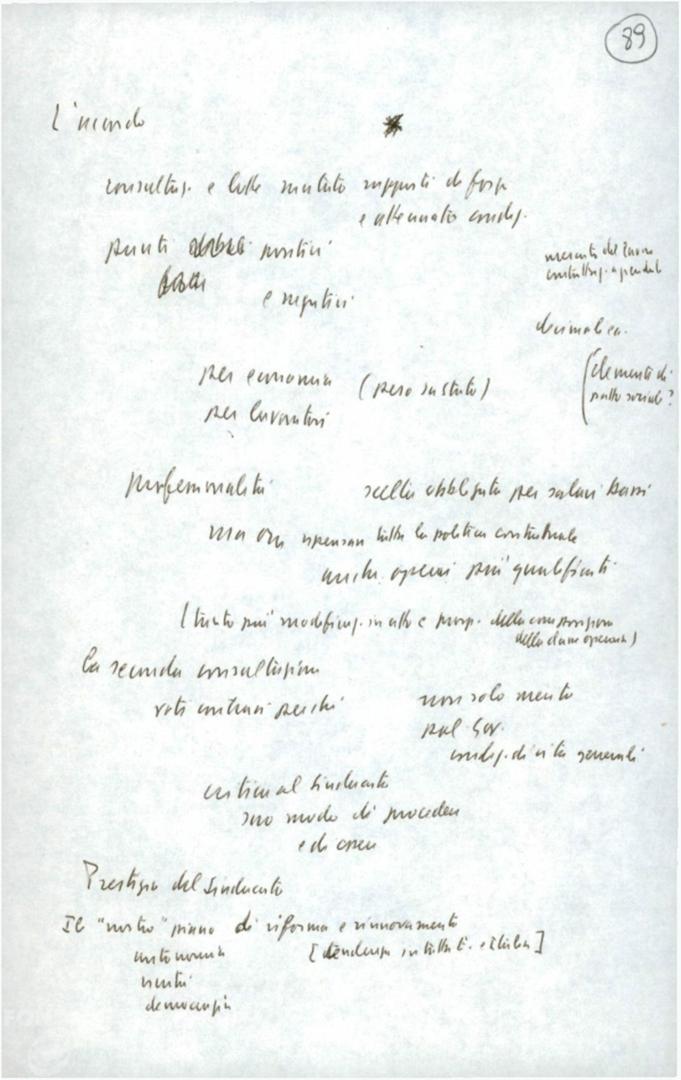 89
L'accordo
consultaz. e lotte mutato rapporti di forza
e attenuato condiz.
punti positivi
e negativi
mercato del lavoro
scala mobile
per economia (peso su stato)
(elementi di
patto sociale?
per lavoratori
professionalità scelta obbligata per salari bassi
ma ora ripensare tutta la politica contrattuale
anche operai più qualificati
(tanto più modificaz. in atto e prosp. della composizione
della classe operaia)
La seconda consultazione
voti contrari perché non solo merito
pol. Gov.
condiz. di vita generali
critica al sindacato
suo modo di procedere
e di essere
Prestigio del Sindacato
Il "nostro" piano di riforma e rinnovamento
autonomia [tendenza in tutta e Italia]
unità
democrazia